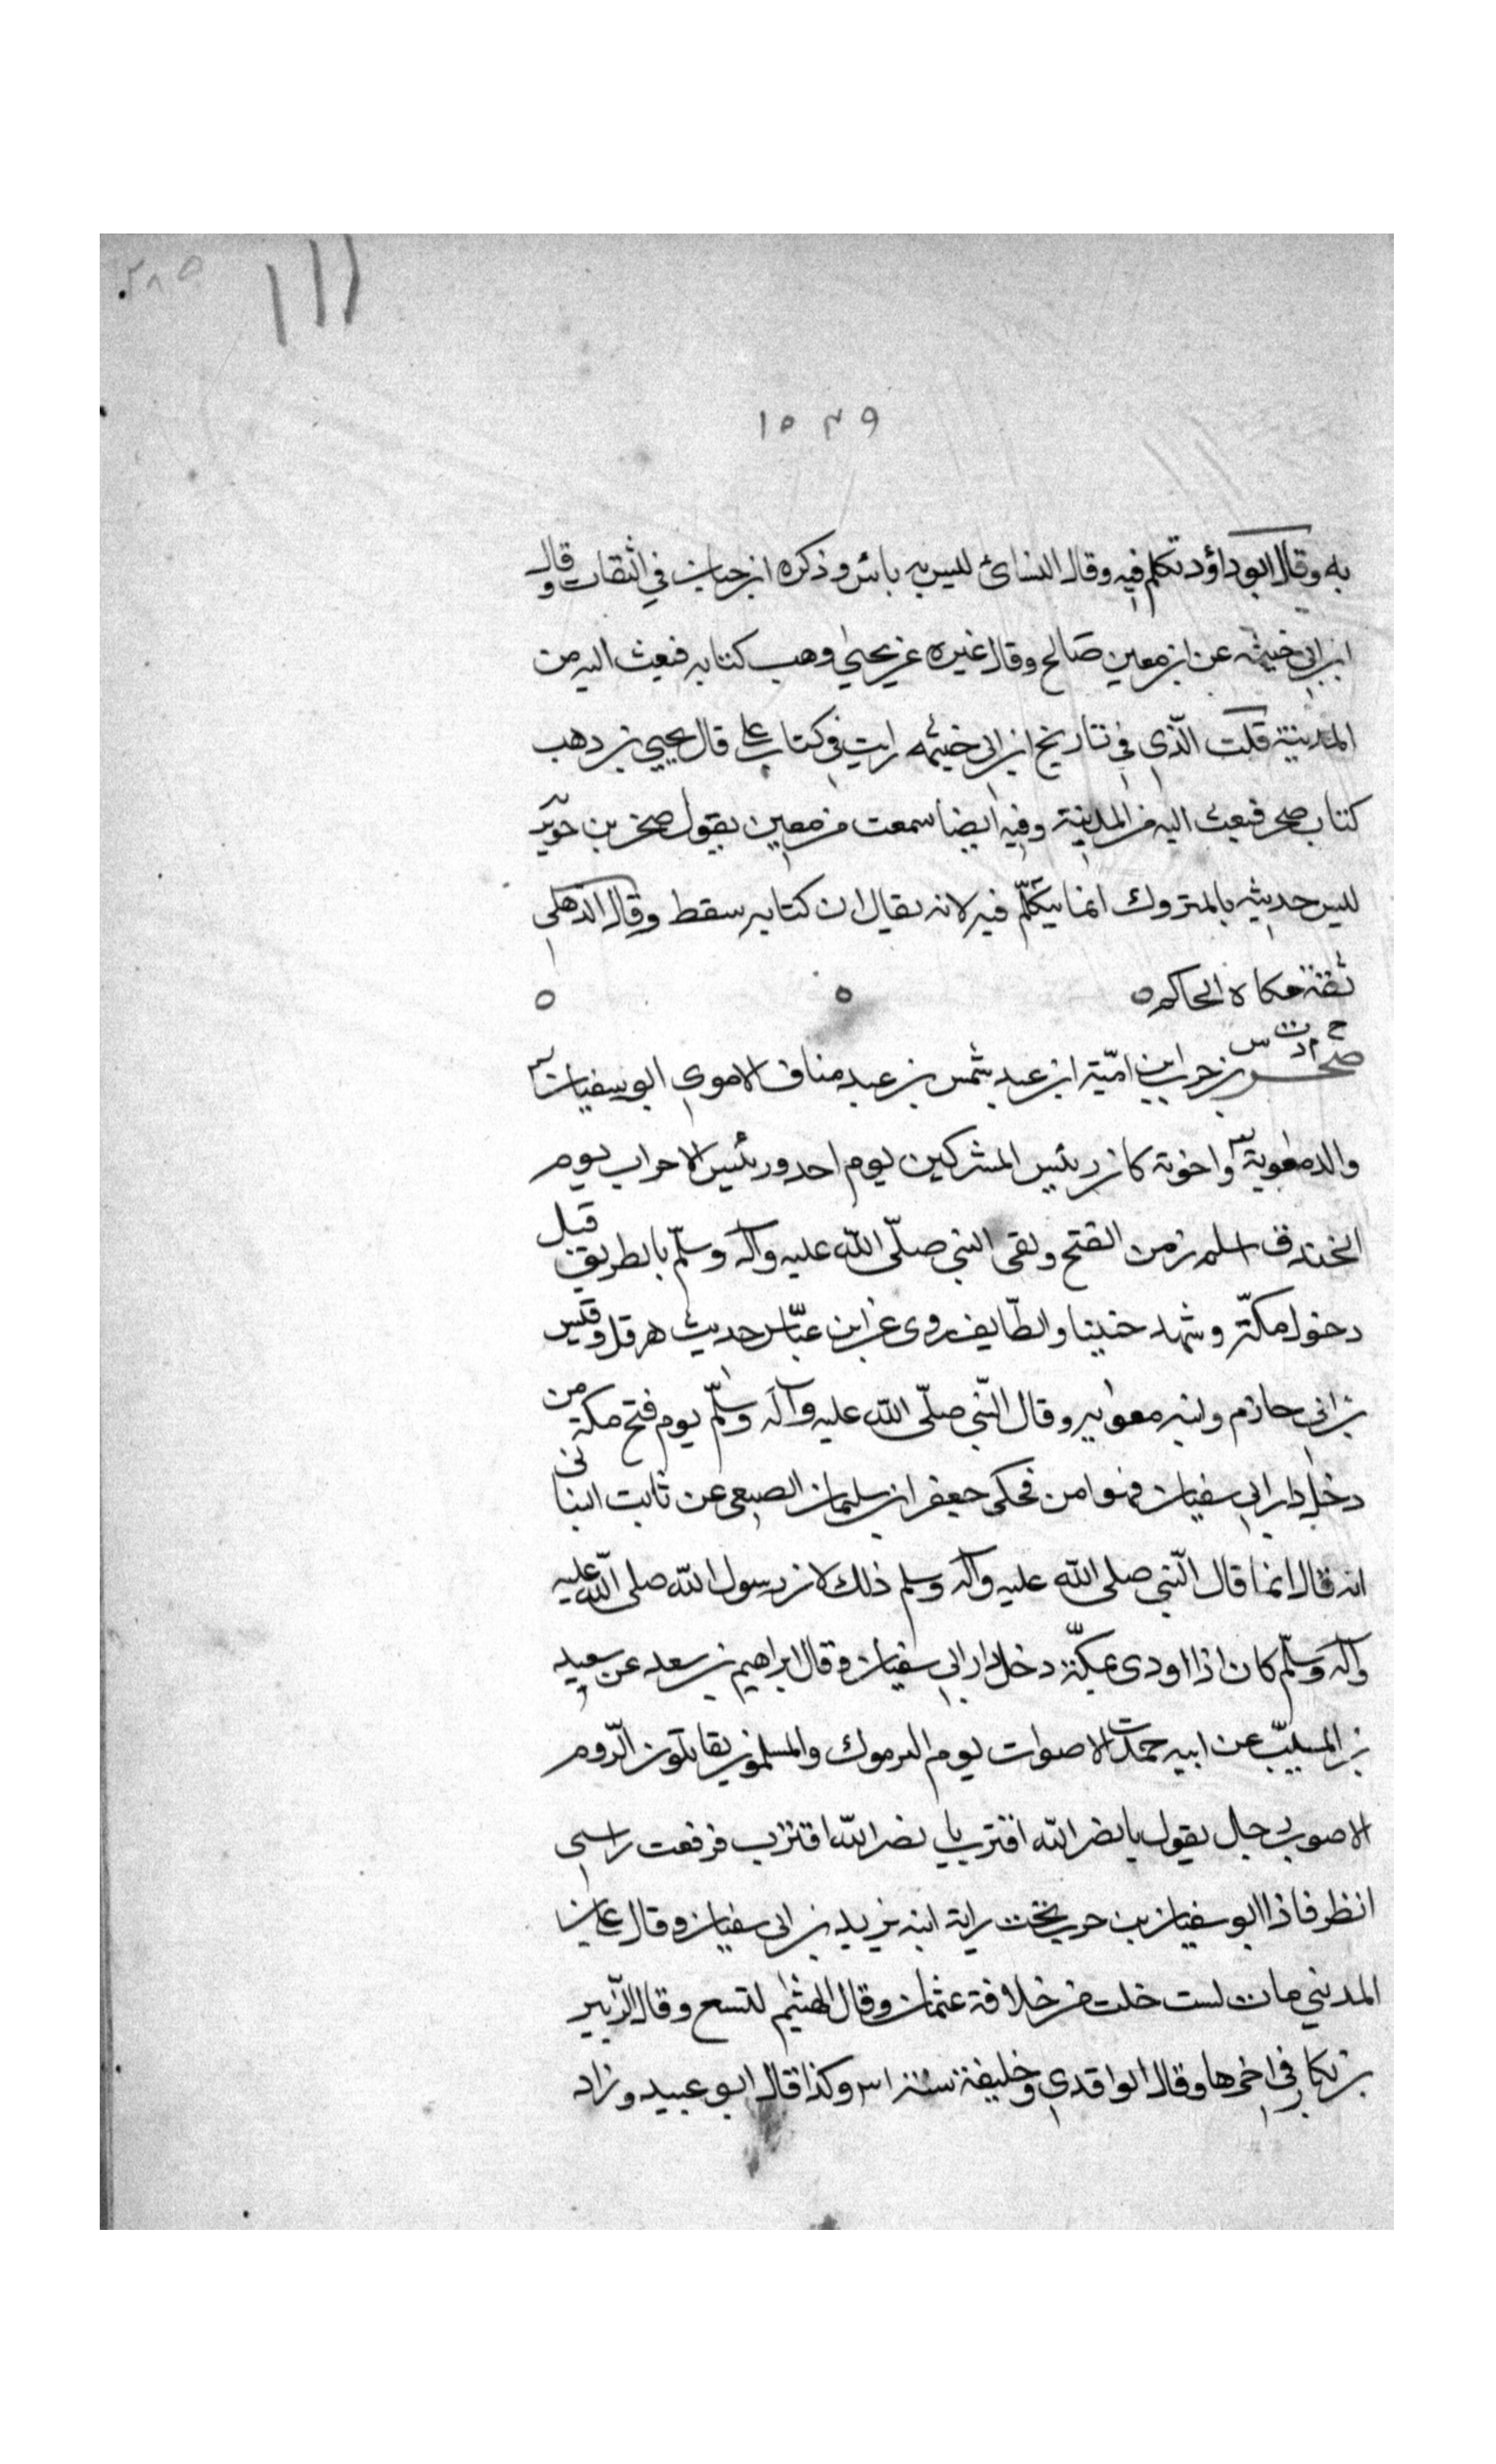 ٢٨٥
١٥٣٩
به وقال ابو داؤد تكلم فيه وقال النسائ ليس به باس وذكره ابن حبان في الثقات وقال
ابن ابي خيثمه عن ابن معين صالح وقال غيره عن يحيى وهب كتابه فبعث اليه من
المدينة قلت الّذي في تاريخ ابن ابى خيثمه رايت في كتاب على قال يحيى بن دهب
كتاب صخر فبعث اليه من المدينة وفيه ايضا سمعت من معين يقول صخر بن جويرية
ليس حديثه بالمتروك انما يتكلّم فيه لانه يقال ان كتابه سقط وقال الذهلى
ثقة حكاه الحاكم ٥ ٥ ٥
خ م د ت س
صخر بن حرب ابن اميّة ابن عبد شمس بن عبد مناف الاموي ابو سفيان
والد معوية واخوته كان رئيس المشركين يوم احد ورئيس الاحزاب يوم
الخندق اسلم زمن الفتح ولقى النبي صلّى اللّه عليه وآله وسلّم بالطريق قبل
دخول مكّة وشهد حنينا والطّايف روى عن ابن عبّاس حديث هرقل وقيس
بن ابى حازم وابنه معويه وقال النّبي صلّى اللّه عليه وآله وسلّم يوم فتح مكة من
دخل دار ابي سفيان فهو امن فحكى جعفر ابن سليمان الضبعى عن ثابت البنانى
انه قال انما قال النّبي صلى اللّه عليه وآله وسلم ذلك لان رسول اللّه صلى اللّه عليه
وآله وسلّم كان اذا اودى بمكّة دخل دار ابي سفيان وقال ابراهيم بن سعد عن سعيد
بن المسيّب عن ابيه حمدت الاصوات يوم اليرموك والمسلمون يقاتلون الرّوم
الا صوت رجل يقول يا نصر اللّه اقترب يا نصر اللّه اقترب فرفعت راسى
انظر فاذا ابو سفيان بن حرب تحت راية ابنه يزيد بن ابى سفيان وقال على بن
المديني مات لست خلت من خلافة عثمان وقال الهيثم لتسع وقال الزّبير
بن بكار في اخرها وقال الواقدي وخليفة سنة ٣١ وكذا قال ابو عبيد وزاد